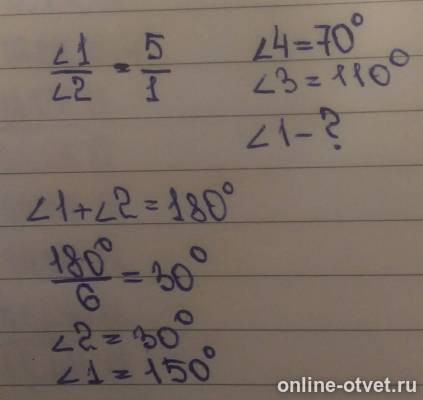 ∠1/∠2 = 5/1
∠4=70°
∠3=110°
∠1-?
∠1+∠2=180°
180°/6=30°
∠2=30°
∠1=150°
online-otvet.ru